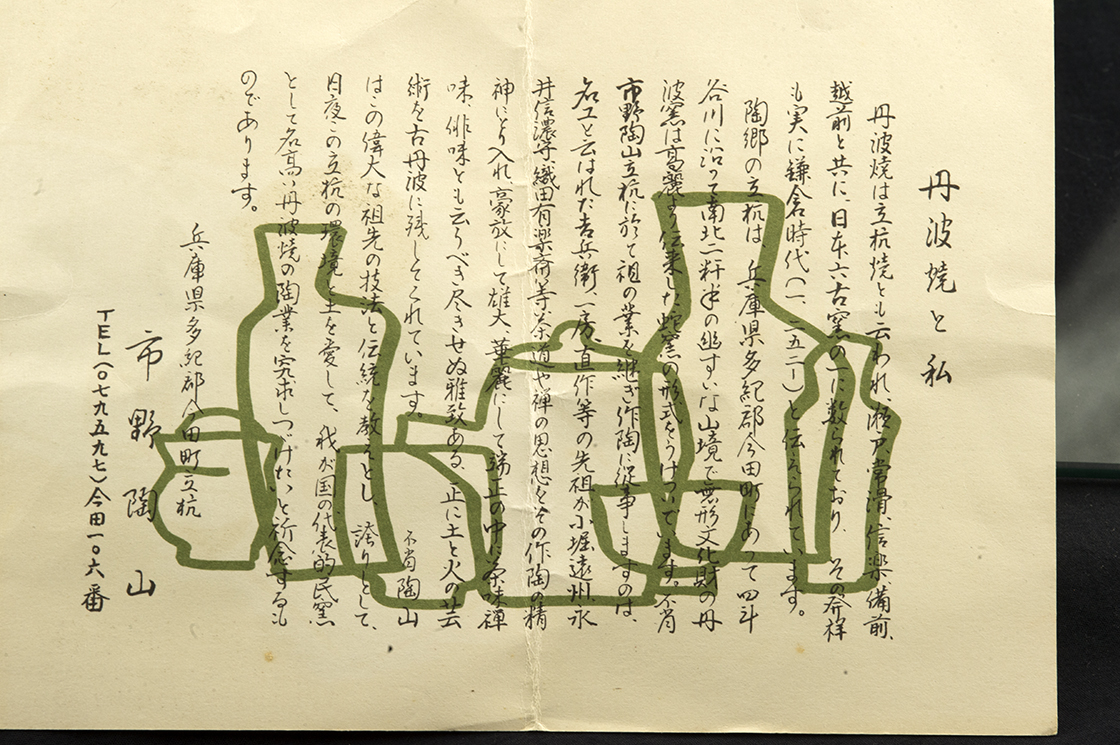 丹波焼と私
丹波焼は立杭焼とも云われ、瀬戸、常滑、信楽、備前、
越前と共に、日本六古窯の一に数られており、その発祥
も実に鎌倉時代(一一五二ー)と伝えられています。
陶郷の立杭は、兵庫県多紀郡今田町にあって四斗
谷川に沿って南北二粁半の幽すいな山境で無形文化財の丹
波窯は高麗より伝来した蛇窯の形式をうけついでいます。不肖
市野陶山立杭に於て祖の業を継ぎ作陶に従事しますのは、
名工と云はれた吉兵衛、一房、直作等の先祖が小堀遠州、永
井信濃守、織田有楽斎等茶道や禅の思想をその作陶の精
神にとり入れ、豪放にして雄大、華麗にして端正の中に茶味禅
味、俳味とも云うべき尽きせぬ雅致ある、正に土と火の芸
術を古丹波に残しこくれています。 不肖陶山
はこの偉大な祖先の技法と伝統を教えとし、誇りとして、
日夜この立杭の環境と土を愛して、我が国の代表的民窯
として名高い丹波焼の陶業を究求しつづけたいと祈念するも
のであります。
兵庫県多紀郡今田町立杭
市野陶山
TEL(〇七九五九七)今田一〇六番